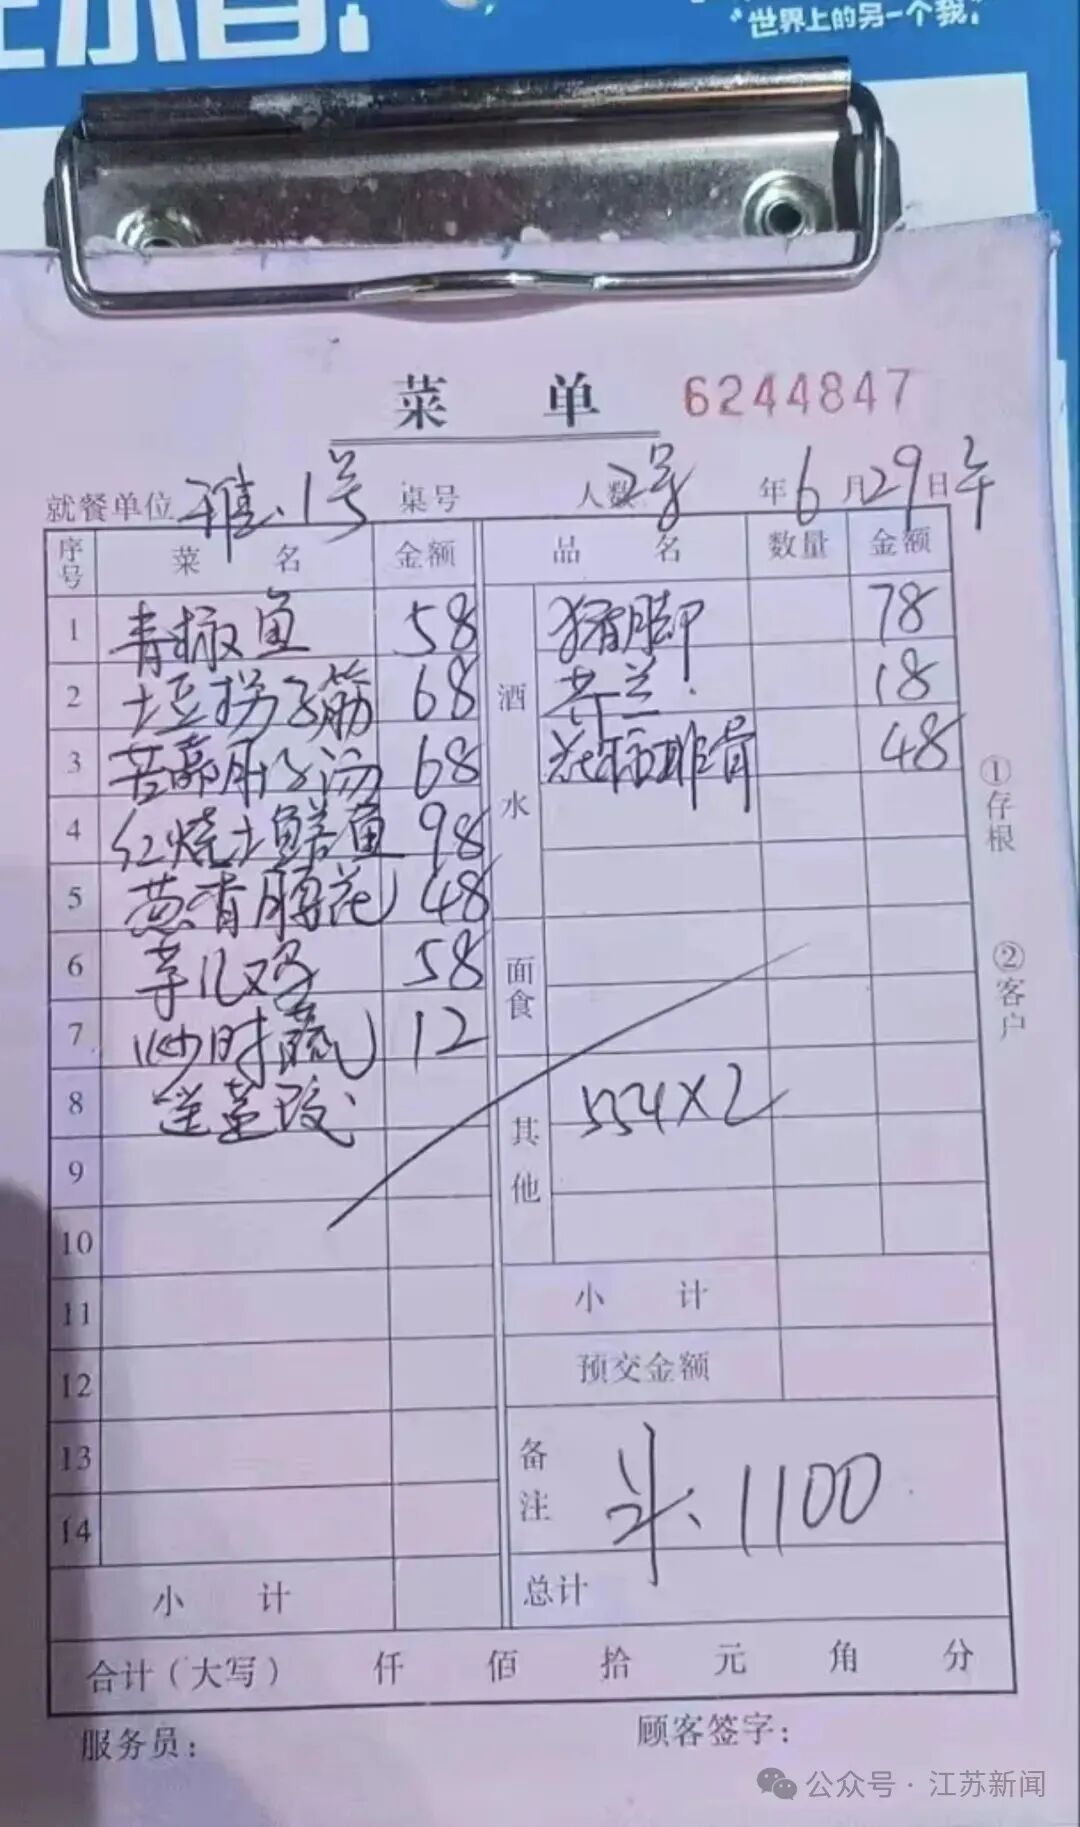 "世界上的另一个我"
菜 单 6244847
就餐单位 雅1号 桌号 人数 2号 年6月29日午
序号 菜 名 金额 品 名 数量 金额
1 青椒鱼 58 猪脚 78
2 土豆拐子筋 68 芥兰 18
3 68 排骨 48
4 红烧土鳝鱼 98
5 葱香腰花 48
6 芋儿鸡 58
7 炒时蔬 12
8
9
10
11
12
13
14
酒水
面食
其他 554×2
小 计
预交金额
备注 斗、1100
小 计 总计
合计(大写) 仟 佰 拾 元 角 分
服务员: 顾客签字:
①存根
②客户
公众号·江苏新闻